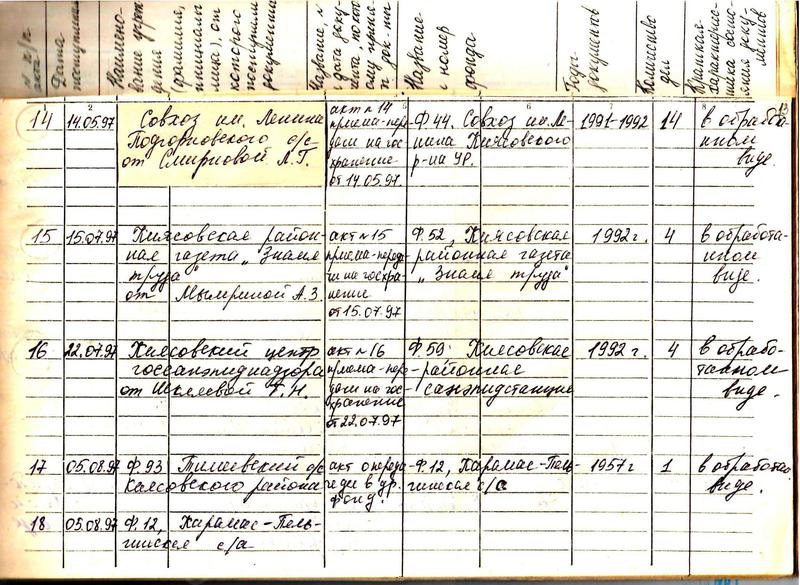 № п/п
акта
Дата
поступления
Наимено-
вание учреж-
дения
(фамилия,
инициалы
лица), от
которого
поступили
документы
Название, №
и дата доку-
мента, по кото-
рому приня-
ты док-ты
Название
и номер
фонда
Годы
документов
Количество
дел
Краткая
характерис-
тика состо-
яния доку-
ментов
1 2 5 6 7 8
14 14.05.97 Совхоз им. Ленина
Подгорновского с/с
от Смирновой Л.Г.
акт №14
приема-пере-
дачи на гос-
хранение
от 14.05.97.
Ф.44. Совхоз им. Ле-
нина Киясовского
р-на УР.
1991-1992 14 в обрабо-
танном
виде.
15 15.07.97 Киясовская район-
ная газета „Знамя
труда"
от Мымриной А.З.
акт №15
приема-переда-
чи на госхра-
нение
от 15.07.97
Ф.52, Киясовская
районная газета
„Знамя труда"
1992г. 4 в обработа-
нном
виде.
16 22.07.97 Киясовский центр
госсанэпиднадзора
от Исклеевой Ф.Н.
акт №16
приема-пере-
дачи на гос-
хранение
от 22.07.97
Ф.59. Киясовская
районная
санэпидстанция
1992г. 4 в обрабо-
танном
виде.
17 05.08.97 Ф.93 с/с
Киясовского района
акт о переда-
че дел в др.
фонд.
Ф.12, Карамас-Пель-
гинский с/с
1957г 1 в обработан
виде.
18 05.08.97 Ф.12, Карамас-Пель-
гинская с/а